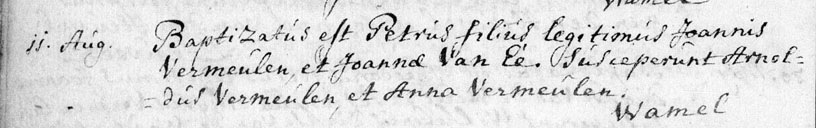 11. Aug. Baptizatus est Petrus filius legitimus Joannis
Vermeulen, et Joannæ Van Ee. Susceperunt Arnol=
=dus Vermeulen, et Anna Vermeulen.
Wamel